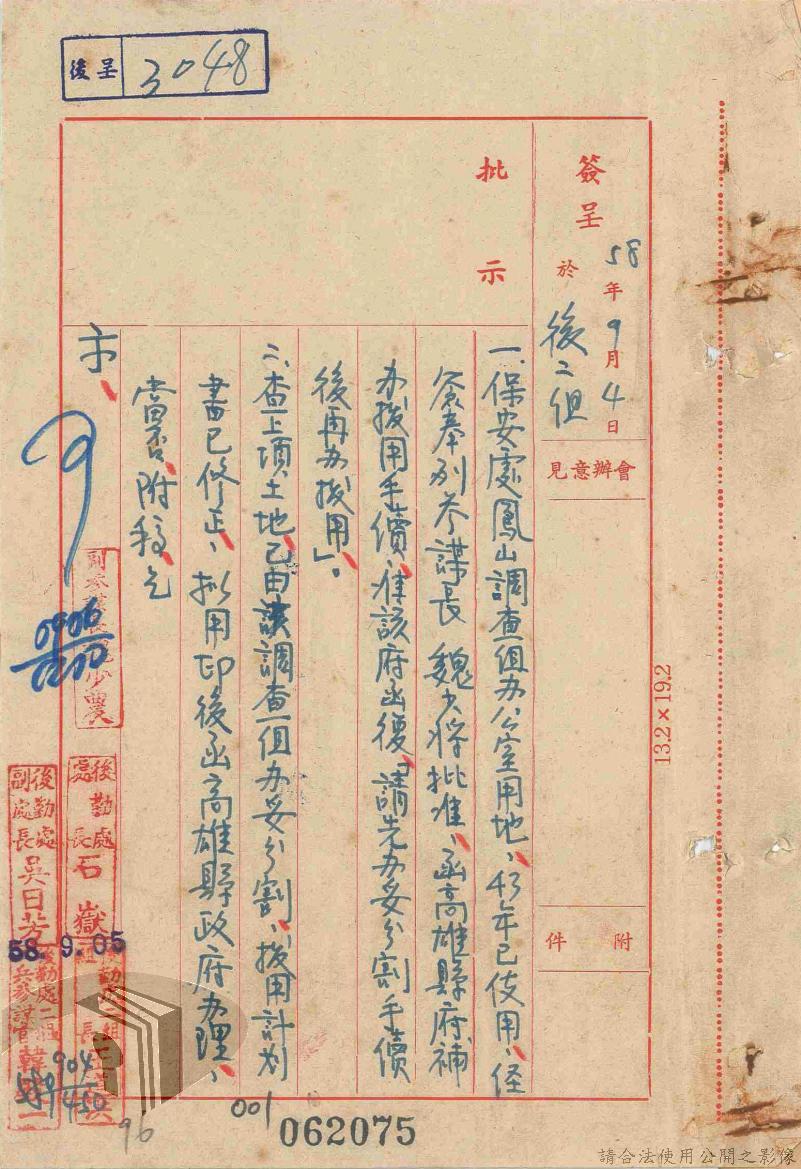 後呈 3048
簽呈
58年9月4日
於 後二組
會辦意見
附件
批示
一、保安處鳳山調查組办公室用地、45年已使用、經
簽奉 副參謀長 魏少將批准、函高雄縣府補
办撥用手續、准該府函復「請先办妥分割手續
後再办撥用」。
二、查上項土地、已由該調查組办妥分割、撥用計划
書已修正、拟用印後函高雄縣政府办理、
當否、附稿、乞
示、
0906
後勤處處長石嶽
後勤處副處長吳日芳
58.9.05
904
1450
001
96
062075
13.2×19.2
請合法使用公開之影像